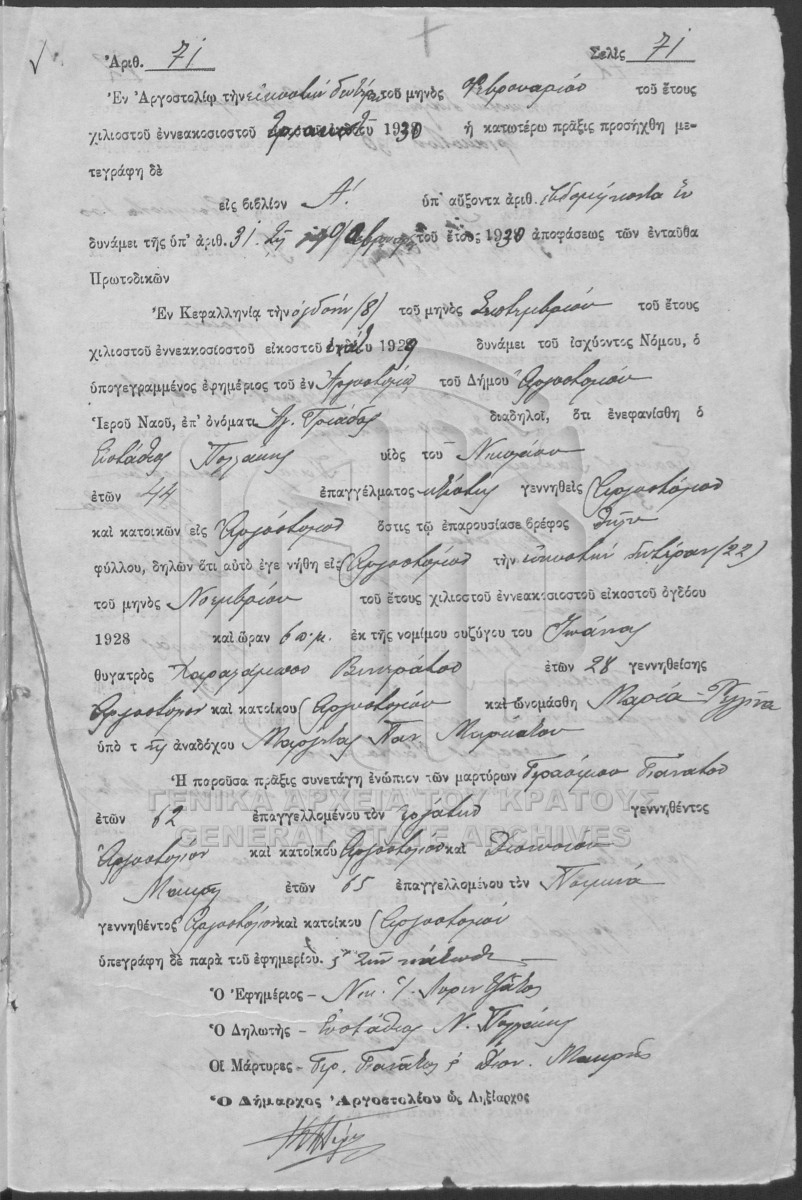 Ἀριθ. 71 Σελὶς 71
Ἐν Ἀργοστολίῳ τὴν εἰκοστὴν δευτέραν τοῦ μηνὸς Φεβρουαρίου τοῦ ἔτους
χιλιοστοῦ ἐννεακοσιοστοῦ τριακοστοῦ 1930 ἡ κατωτέρω πρᾶξις προσήχθη με-
τεγράφη δὲ
εἰς βιβλίον Α! ὑπ' αὔξοντα ἀριθ. ἑβδομήκοντα ἕν
δυνάμει τῆς ὑπ' ἀριθ. 31 τοῦ ἔτους 1930 ἀποφάσεως τῶν ἐνταῦθα
Πρωτοδικῶν
Ἐν Κεφαλληνίᾳ τὴν ὀγδόην (8) τοῦ μηνὸς Σεπτεμβρίου τοῦ ἔτους
χιλιοστοῦ ἐννεακοσιοστοῦ εἰκοστοῦ ἐνάτου 1929 δυνάμει τοῦ ἰσχύοντος Νόμου, ὁ
ὑπογεγραμμένος ἐφημέριος τοῦ ἐν Ἀργοστολίῳ τοῦ Δήμου Ἀργοστολίου
Ἱεροῦ Ναοῦ, ἐπ' ὀνόματι Ἁγ. Τριάδος διαδηλοῖ, ὅτι ἐνεφανίσθη ὁ
Εὐστάθιος Πολλάκης υἱὸς τοῦ Νικολάου
ἐτῶν 44 ἐπαγγέλματος κτίστης γεννηθεὶς Ἀργοστόλιον
καὶ κατοικῶν εἰς Ἀργοστόλιον ὅστις τῷ ἐπαρουσίασε βρέφος θῆλυ
φύλλου, δηλῶν ὅτι αὐτὸ ἐγεννήθη εἰς Ἀργοστόλιον τὴν εἰκοστὴν δευτέραν (22)
τοῦ μηνὸς Νοεμβρίου τοῦ ἔτους χιλιοστοῦ ἐννεακοσιοστοῦ εἰκοστοῦ ὀγδόου
1928 καὶ ὥραν 6 π.μ. ἐκ τῆς νομίμου συζύγου του Ἰωάννας
θυγατρὸς Χαραλάμπου Βινιεράτου ἐτῶν 28 γεννηθείσης
Ἀργοστόλιον καὶ κατοίκου Ἀργοστολίου καὶ ὠνομάσθη Μαρία-
ὑπὸ τῆς ἀναδόχου Μαρκάτου
Ἡ παροῦσα πρᾶξις συνετάγη ἐνώπιον τῶν μαρτύρων Γερασίμου Γιανάτου
ἐτῶν 62 ἐπαγγελλομένου τὸν ἐργάτην γεννηθέντος
Ἀργοστόλιον καὶ κατοίκου Ἀργοστολίου καὶ Διονυσίου
Μακρῆ ἐτῶν 65 ἐπαγγελλομένου τὸν
γεννηθέντος Ἀργοστόλιον καὶ κατοίκου Ἀργοστολίου
ὑπεγράφη δὲ παρὰ τοῦ ἐφημερίου.
Ὁ Ἐφημέριος - Νικ. Λορεντζᾶτος
Ὁ Δηλωτὴς - Εὐστάθιος Ν. Πολλάκης
Οἱ Μάρτυρες - Γερ. Γιανᾶτος Διον. Μακρῆς
Ὁ Δήμαρχος Ἀργοστολέου ὡς Ληξίαρχος
ΓΕΝΙΚΑ ΑΡΧΕΙΑ ΤΟΥ ΚΡΑΤΟΥΣ
GENERAL STATE ARCHIVES